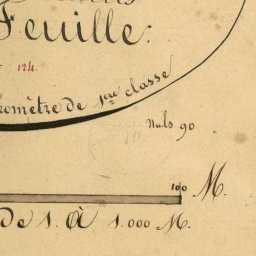 Feuille:
124.
de 1ère classe
Nuls 90
100 M.
DE 1. À 1.000 M.